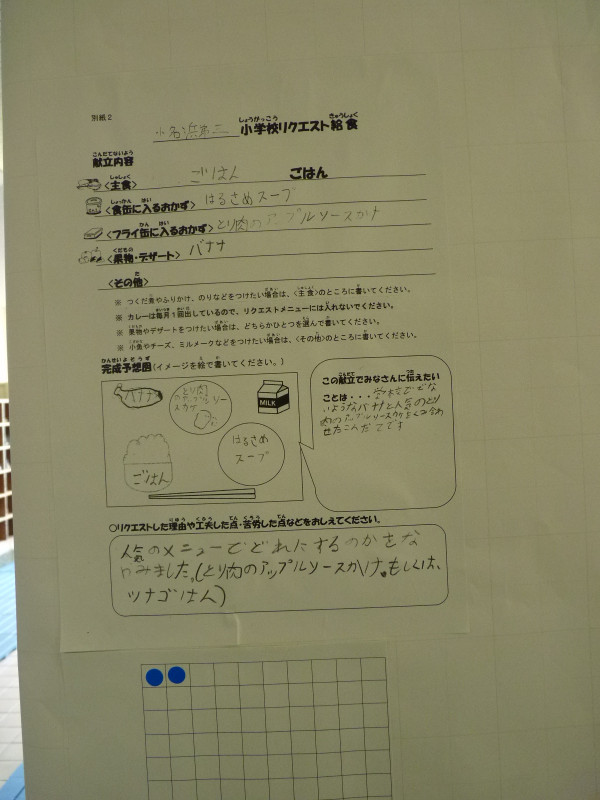 別紙2
小名浜第二 小学校リクエスト給食
しょうがっこう きゅうしょく
こんだてないよう
献立内容
しゅしょく
〈主食〉 ごはん ごはん
しょっかん はい
〈食缶に入るおかず〉 はるさめスープ
かん はい
〈フライ缶に入るおかず〉 とり肉のアップルソースかけ
くだもの
〈果物・デザート〉 バナナ
た
〈その他〉
※ つくだ煮やふりかけ、のりなどをつけたい場合は、〈主食〉のところに書いてください。
※ カレーは毎月1回出しているので、リクエストメニューには入れないでください。
※ 果物やデザートをつけたい場合は、どちらかひとつを選んで書いてください。
※ 小魚やチーズ、ミルメークなどをつけたい場合は、〈その他〉のところに書いてください。
かんせいよそうず
完成予想図(イメージを絵で書いてください。)
バナナ
とり肉
ソー
スカケ
MILK
ごはん
はるさめ
スープ
この献立でみなさんに伝えたい
ことは・・・
バナナと人気のとり
肉のアップルソースかけをくみ合わ
せたこんだてです
○リクエストした理由や工夫した点・苦労した点などをおしえてください。
人気のメニューでどれにするのかをな
やみました。(とり肉のアップルソースかけ。もしくは、
ツナごはん)